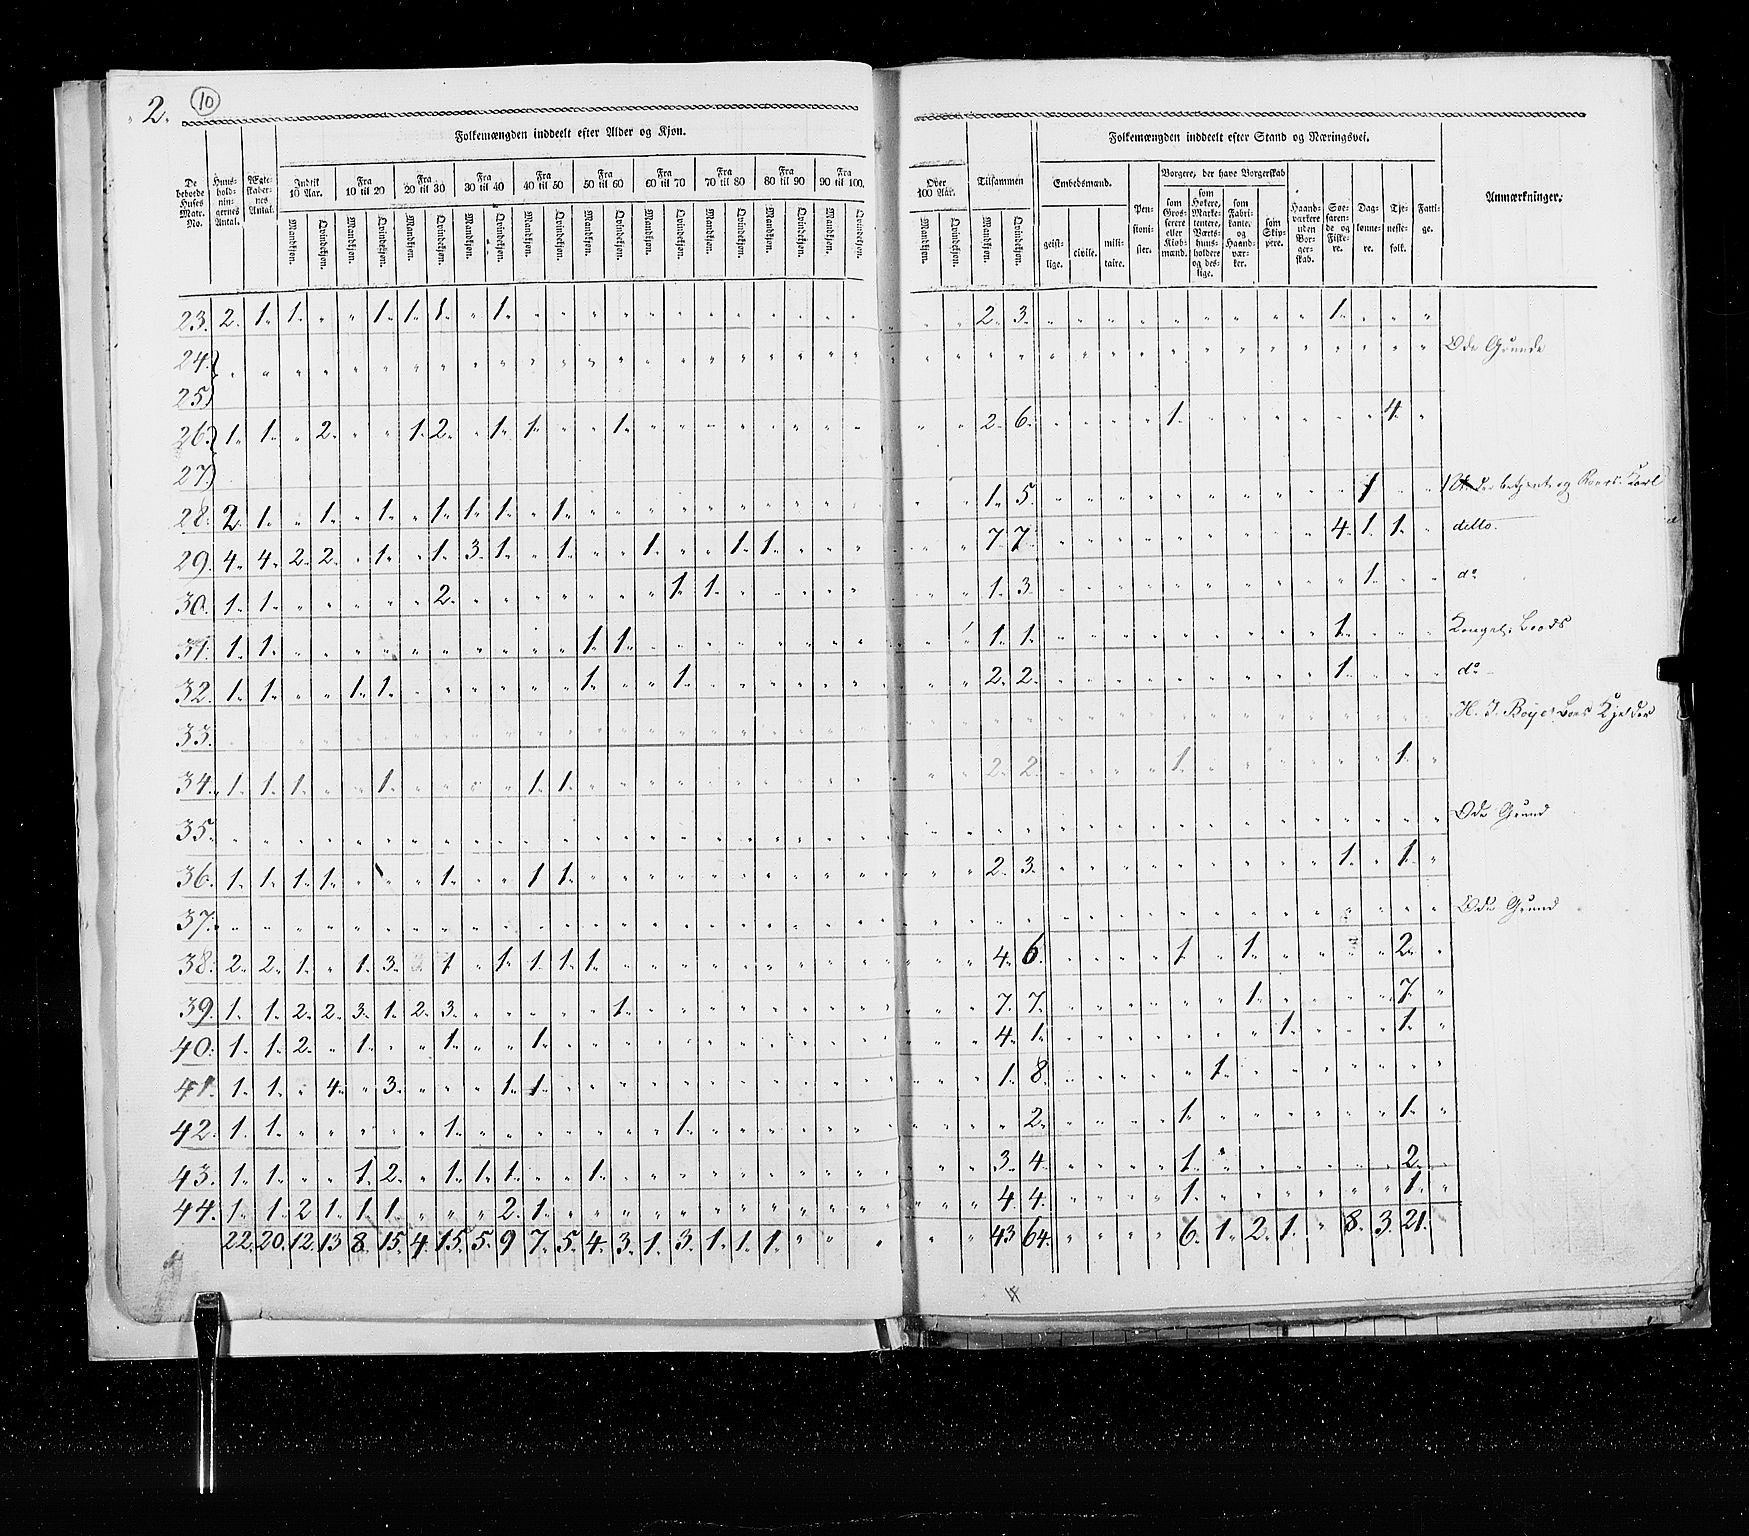 2. 10
Folkemængden inddeelt efter Alder og Kjøn.
De beboede Huses Matr. No.
Huus-hold-nin-gernes Antal.
Ægte-skaber-nes Antal.
Indtil 10 Aar. Fra 10 til 20 Fra 20 til 30 Fra 30 til 40 Fra 40 til 50 Fra 50 til 60 Fra 60 til 70 Fra 70 til 80 Fra 80 til 90 Fra 90 til 100.
Mandkjøn. Qvindekjøn. Mandkjøn. Qvindekjøn. Mandkjøn. Qvindekjøn. Mandkjøn. Qvindekjøn. Mandkjøn. Qvindekjøn. Mandkjøn. Qvindekjøn. Mandkjøn. Qvindekjøn. Mandkjøn. Qvindekjøn. Mandkjøn. Qvindekjøn. Mandkjøn. Qvindekjøn.
Over 100 Aar. Tilsammen
Mandkjøn. Qvindekjøn. Mandkjøn. Qvindekjøn.
Folkemængden inddeelt efter Stand og Næringsvei.
Embedsmænd.
geist-lige. civile. mili-taire.
Pen-sioni-ster.
Borgere, der have Borgerskab
som Gros-serere eller Kiøb-mænd.
som Høkere, Marke-tentere, Værts-huus-holdere og des-lige.
som Fabri-kante. og Haand-vær-ker.
som Skip-pere.
Haand-værkere uden Bor-ger-skab.
Søe-faren-de og Fiske-re.
Dag-lønne-re.
Tje-neste-folk.
Fatti-ge.
Anmærkninger.
23. 2. 1. 1. " " 1. 1. 1. " 1. 2. 3. 1.
24. Øde Grunde
25
26. 1. 1. " 2. " " 1. 2. " 1. 1. " " 1. 2. 6. 1. 4.
27
28. 2. 1. " 1. " 1. " 1. 1. 1. " 1. 1. 5. 1
29. 4. 4. 2. 2. " 1. " 1. 3. 1. " 1. " " 1. " " 1. 1. 7. 7. 4. 1. 1. ditto.
30. 1. 1. 2. 1. 1. 1. 3. 1. do
31. 1. 1. 1. 1. 1. 1. 1.
32. 1. 1. " " 1. 1. 1. " " 1. 2. 2. 1. do
33.
34. 1. 1. 1. " " 1. 1. 1. 2. 2. 1. 1.
35. Øde Grund
36. 1. 1. 1. 1. 1. 1. 1. 2. 3. 1. 1.
37. Øde Grund
38. 2. 2. 1. " 1. 3. 1 " 1. 1. 1. 1. 4. 6. 1 1. 2.
39. 1. 1. 2. 2. 3. 1. 2. 3. 1. 7. 7. 1. 7.
40. 1. 1. 2. " 1. " " 1. " " 1. 4. 1. 1. 1.
41. 1. 1. " 4. " 3. 1. 1. 1. 8. 1.
42. 1. 1. 1. 1. 2. 1. 1.
43. 1. 1. " " 1. 2. " 1. 1. 1. " " 1. 3. 4. 1. 2.
44. 1. 1. 2 1. 1. 1. " " " 2. 1. 4. 4. 1. 1.
22. 20. 12. 13 8. 15. 4. 15. 5. 9 7. 5. 4. 3. 1. 3. 1. 1. 1. " " 43 64. 6. 1. 2. 1. " 8. 3. 21.